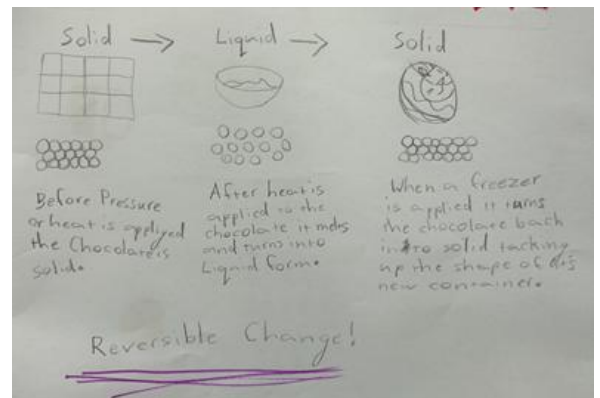 Solid → Liquid → Solid
Before Pressure
or heat is appliyed
the Chocolate is
solid.
After heat is
applied to the
chocolate it melts
and turns into
Liquid form.
When a freezer
is applied it turns
the chocolate back
into solid tacking
up the shape of it's
new container.
Reversible Change!